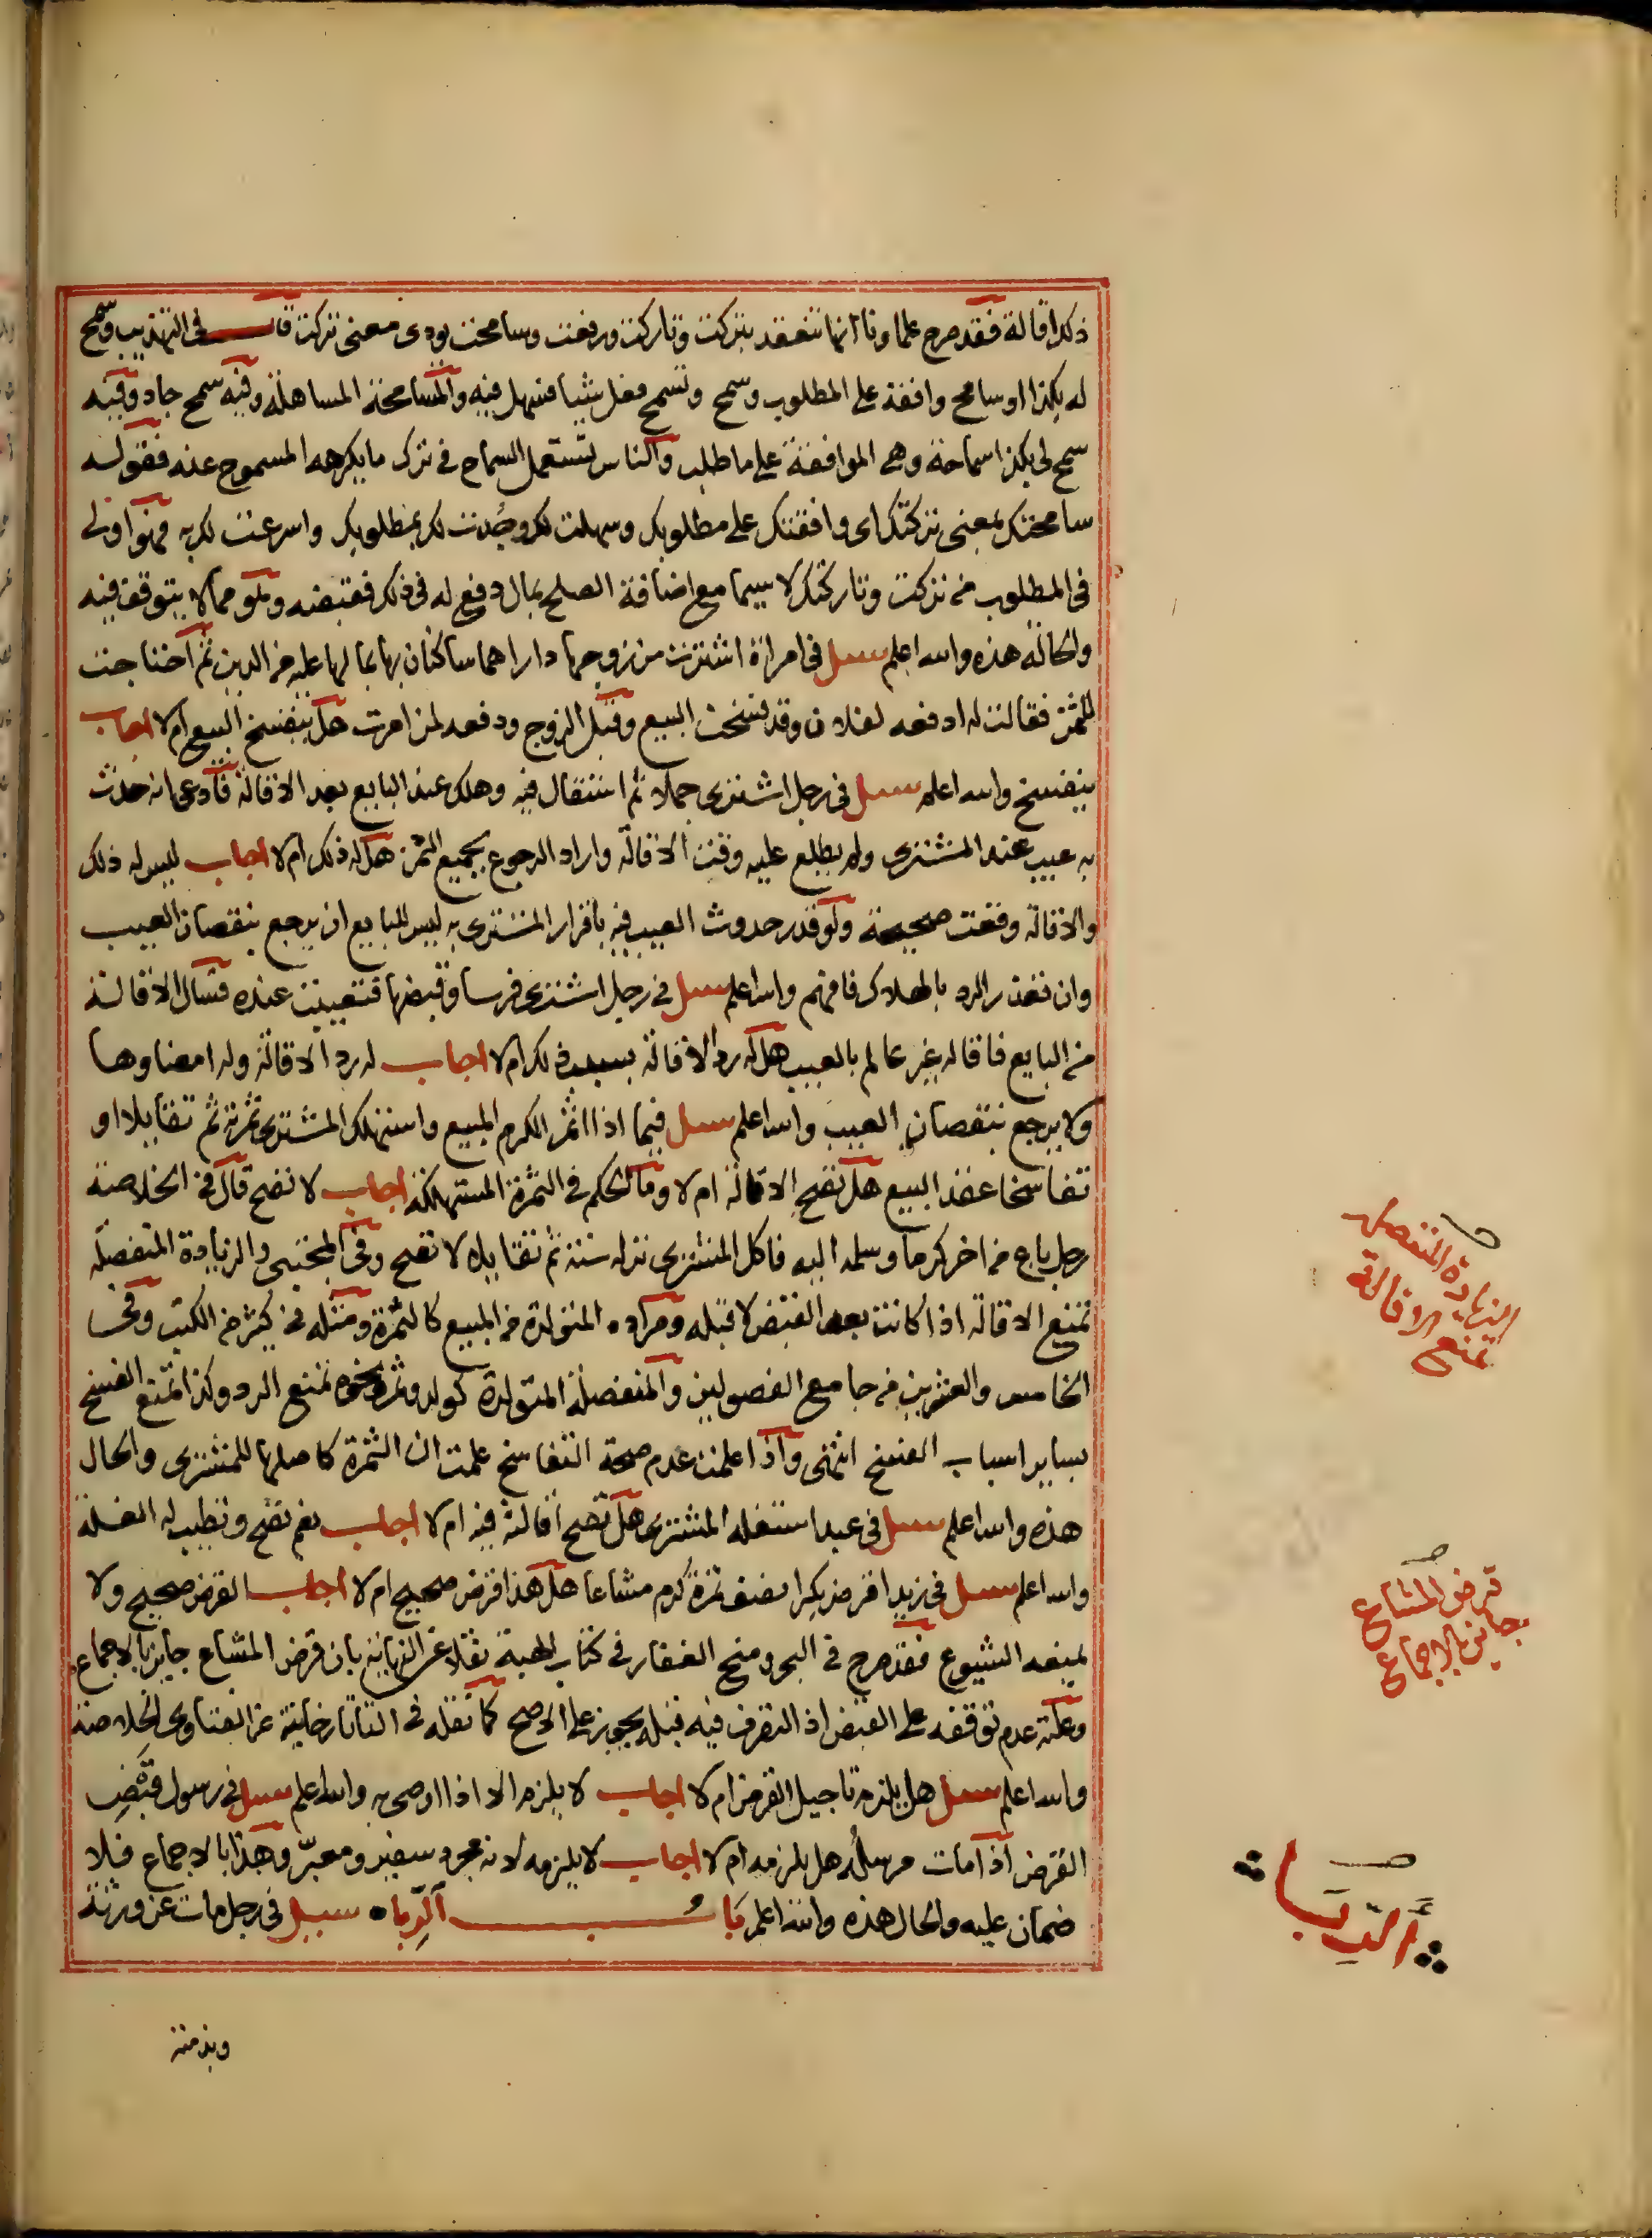 ذلك اقالة فقد صرح علماونا انها تنعقد بتركت وتاركت ورفعت وسامحت يودى معنى تركت قال في التهذيب وسمح
له بكذا او سامح وافقه على المطلوب وسمح وتسمح فعل شيا فسهل فيه والمسامحة المساهلة وفيه سمح جاد وفيه
سمح لى بكذا سماحة وهى الموافقة على ما طلب والناس تستعمل السماح في ترك ما يكرهه المسموح عنه فقوله
سامحتك بمعنى تركتك اى وافقتك على مطلوبك وسهلت لك وجدت لك بمطلوبك واسرعت لك به فهو اولى
في المطلوب من تركت وتاركتك لا سيما مع اضافة الصلح بمال دفع له في ذلك فقبضه وهو مما لا يتوقف فيه
والحالة هذه والله اعلم سيل في امراة اشترت من زوجها دارا هما ساكنان بها بما لها عليه من الدين ثم احتاجت
للثمن فقالت له ادفعه لفلان وقد فسخت البيع وقبل الزوج ودفعه لمن امرت هل ينفسخ البيع ام لا اجاب
ينفسخ والله اعلم سيل في رجل اشترى جملا ثم استقال فيه وهلك عند البايع بعد الاقالة فادعى انه حدث
به عيب عند المشترى ولم يطلع عليه وقت الاقالة واراد الرجوع بجميع الثمن هل له ذلك ام لا اجاب ليس له ذلك
والاقالة وقعت صحيحة ولو قدر حدوث العيب فيه باقرار المشترى به ليس للبايع ان يرجع بنقصان العيب
وان تعذر الرد بالهلاك فافهم والله اعلم سيل في رجل اشترى فرسا وقبضها فتعيبت عنده فسال الاقالة
من البايع فاقاله غير عالم بالعيب هل له رد الاقالة بسبب ذلك ام لا اجاب له رد الاقالة وله امضاوها
ولا يرجع بنقصان العيب والله اعلم سيل فيما اذا اثمر الكرم المبيع واستهلك المشترى ثمرته ثم تقايلا او
تفاسخا عقد البيع هل تصح الاقالة ام لا وما الحكم في الثمرة المستهلكة اجاب لا تصح قال في الخلاصة
رجل باع من اخر كرما وسلمه اليه فاكل المشترى نزله سنة ثم تقايلا لا تصح وفي المجتبى والزيادة المنفصلة
تمنع الاقالة اذا كانت بعد القبض لا قبله ومراده المتولدة من المبيع كالثمرة ومثله في كثير من الكتب وفي
الخامس والعشرين من جامع الفصولين والمنفصلة المتولدة كولد وثمر ونحوه تمنع الرد وكذا تمنع الفسخ
بساير اسباب الفسخ انتهى واذا علمت عدم صحة التفاسخ علمت ان الثمرة كاملها للمشترى والحال
هذه والله اعلم سيل في عبد استغله المشترى هل تصح اقالته فيه ام لا اجاب نعم تصح وتطيب له الغلة
والله اعلم سيل في زيد اقرض بكرا نصف ثمرة كرم مشاعا هل هذا قرض صحيح ام لا اجاب القرض صحيح ولا
يمنعه الشيوع فقد صرح في البحر ومنح الغفار في كتاب الهبة نقلا عن النهاية بان قرض المشاع جايز بالاجماع
وعلته عدم توقفه على القبض اذ التصرف فيه قبله يجوز على الاصح كما نقله في التاتارخانية عن الفتاوى الخلاصة
والله اعلم سيل هل يلزم تاجيل القرض ام لا اجاب لا يلزم الا اذا اوصى به والله اعلم سيل في رسول قبض
القرض اذا مات مرسله هل يلزمه ام لا اجاب لا يلزمه لانه مجرد سفير ومعبر وهذا بالاجماع فلا
ضمان عليه والحال هذه والله اعلم باب الربا سيل في رجل مات عن ورثة
الزيادة المنفصلة
تمنع الاقالة
قرض المشاع
جايز بالاجماع
الربا
وبذمته